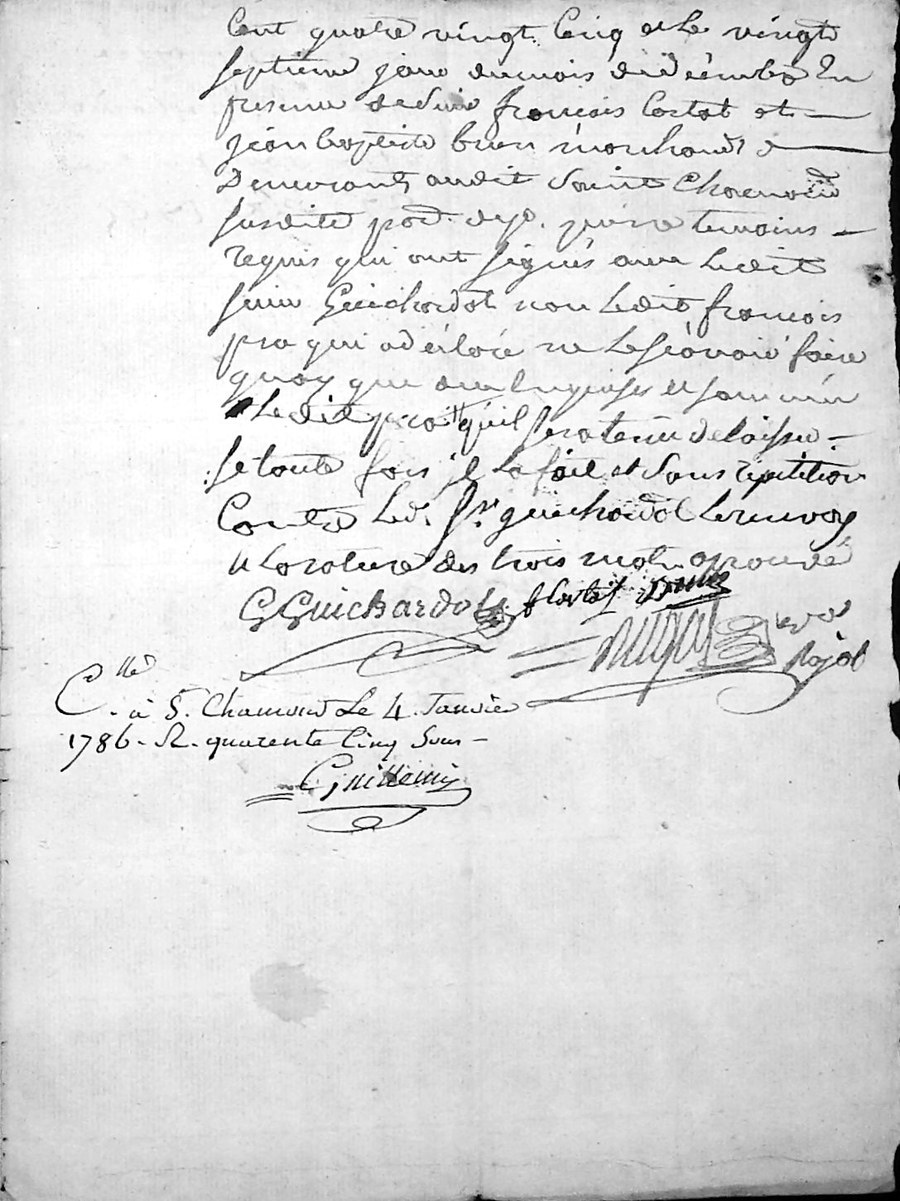 Cent quatre vingt Cinq et Le vingt
septieme jour du mois de décembre En
presence de Sieur françois Cortot et
jean baptiste brun marchands
Demeurants audit Saint Chamond
susdite par. temoins
requis qui ont signés avec Ledit
sieur Guichardot non Ledit françois
pra qui a déclaré ne Le sçavoir faire
quoy que enquis et sommé
Ledit pra qu'il sera tenu de laisser
toute fois il La fait et Sans répétition
Contre Led. Sr guichardot
La rature des trois mots aprouvé
G Guichardot f Cortot
Rajot
C.lle à S. Chamond Le 4. Janvier
1786. R. quarente Cinq Sous
Guillemin